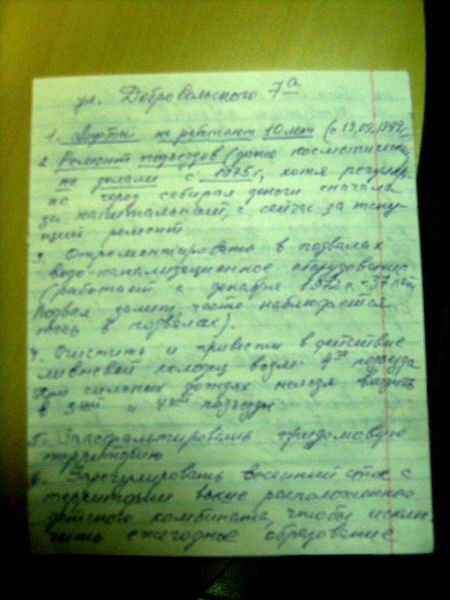 ул. Добровольского 7а
1. Лифты не работают 10 лет (с 19.05.1999г.
2. Ремонт подъездов (даже косметический
не делали с 1975г, хотя регуляр-
но город собирал деньги сначала
за капитальный, а сейчас за теку-
щий ремонт.
3. Отремонтировать в подвалах
водо-канализационное оборудование
(работает с декабря 1972г. - 37 лет
Подвал залит, часто наблюдается
течь в подвалах).
4. Очистить и привести в действие
ливневой колодец возле 4го подъезда
При сильных дождях нельзя
в 3ий и 4ый подъезды
5. Заасфальтировать придомовую
территорию
6. Зарегулировать весенний сток с
территории выше расположенного
детского комбината, чтобы исклю-
чить ежегодное образование